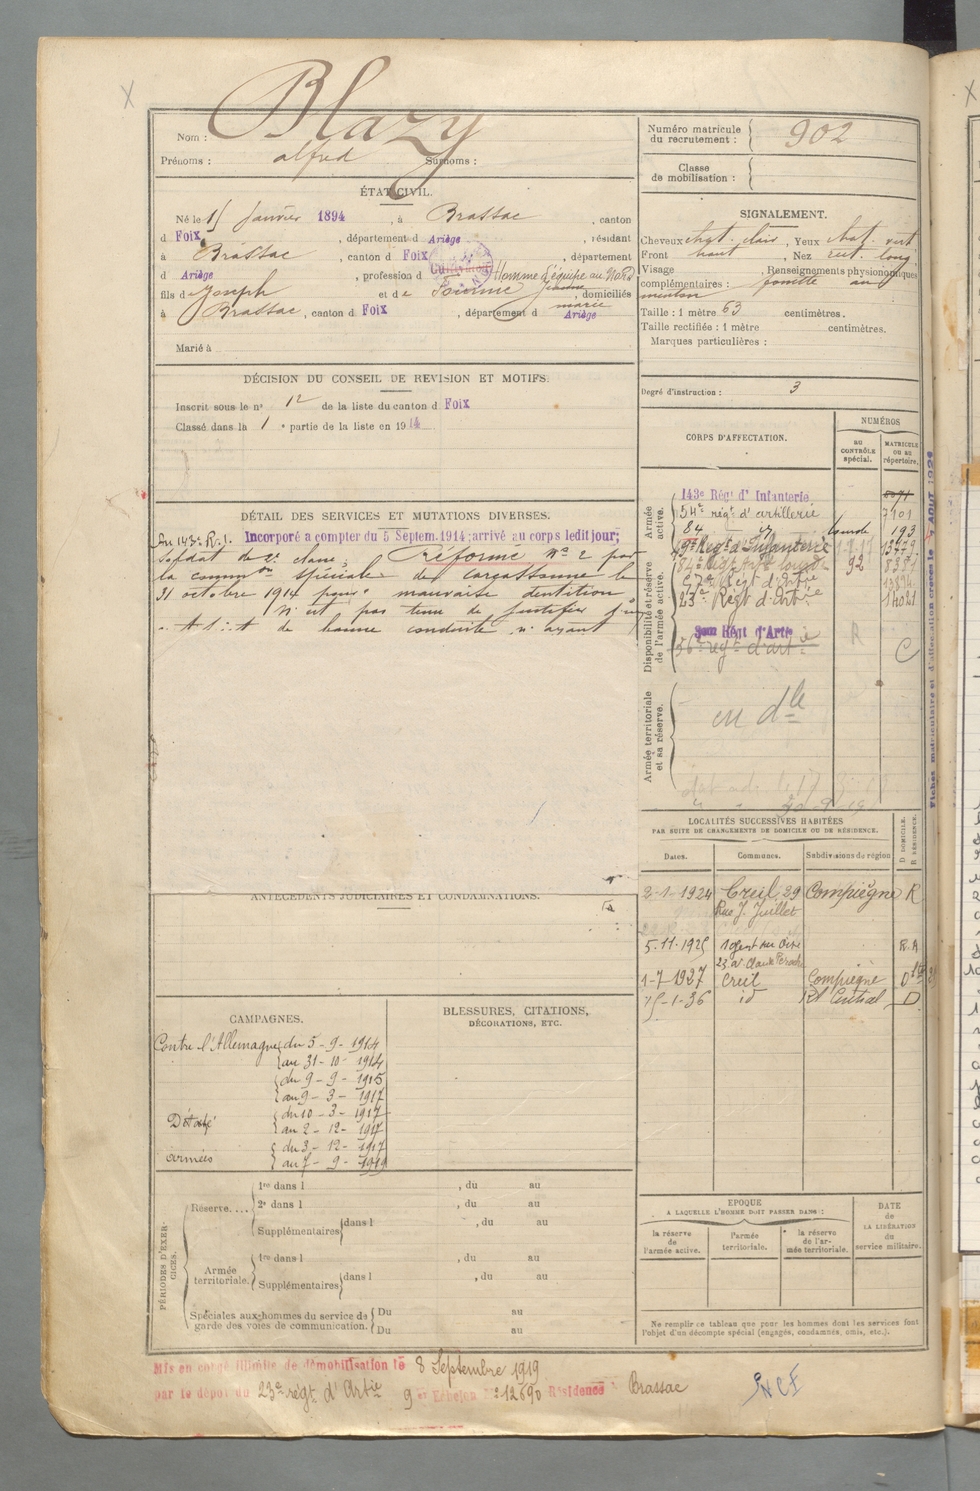 Nom : Blazy
Prénoms : alfred Surnoms :
Numéro matricule du recrutement : 902
Classe de mobilisation :
ÉTAT CIVIL.
Né le 15 Janvier 1894, à Brassac, canton
d Foix, département d Ariège, résidant
à Brassac, canton d Foix, département
d Ariège, profession d Cultivateur Homme d'équipe au Nord
fils de Joseph et de Fourmé Jeanne marie, domiciliés
à Brassac, canton d Foix, département d Ariège
Marié à
SIGNALEMENT.
Cheveux chat. clair, Yeux chat. vert
Front haut, Nez rect. long
Visage , Renseignements physionomiques
complémentaires : fossette au
menton
Taille : 1 mètre 63 centimètres.
Taille rectifiée : 1 mètre centimètres.
Marques particulières :
Degré d'instruction : 3
DÉCISION DU CONSEIL DE REVISION ET MOTIFS.
Inscrit sous le n° 12 de la liste du canton d Foix
Classé dans la 1 e partie de la liste en 1914
DÉTAIL DES SERVICES ET MUTATIONS DIVERSES.
Au 143e R. I. Incorporé à compter du 5 Septem. 1914; arrivé au corps ledit jour;
Soldat de 2e classe, Réformé No 2 par
la common spéciale de Carcassonne le
31 octobre 1914 pour mauvaise dentition
N'est pas tenu de justifier
de bonne conduite n'ayant
CORPS D'AFFECTATION.
NUMÉROS
AU CONTRÔLE spécial.
MATRICULE OU AU répertoire.
Armée active.
143e Régt d'Infanterie
54e régt d'artillerie 7101
84 lourde 193
9e Régt d'Infanterie
Disponibilité et réserve de l'armée active.
92 8381
Régt d'Artie
23e Régt d'Artie 14021
Régt d'Artie
56e régt d'artie C
Armée territoriale et sa réserve.
en dle
Fiches matriculaire et d'affectation créées le AOUT 1929
LOCALITÉS SUCCESSIVES HABITÉES
PAR SUITE DE CHANGEMENTS DE DOMICILE OU DE RÉSIDENCE.
Dates. Communes. Subdivisions de région D DOMICILE. R RÉSIDENCE.
2-1-1924 Creil 29 Compiègne R
Rue J. Juillet
5.11.1925 Nogent sur Oise R.A
23 av. Claude Peroche
1-7-1927 Creil Compiègne D
15-1-36 id Rt Central D
ANTÉCÉDENTS JUDICIAIRES ET CONDAMNATIONS.
CAMPAGNES.
Contre l'Allemagne du 5-9-1914
au 31-10-1914
du 9-9-1915
au 9-3-1917
Détaché du 10-3-1917
au 2-12-1917
Armées du 3-12-1917
au 7-9-1919
BLESSURES, CITATIONS,
DÉCORATIONS, ETC.
PÉRIODES D'EXERCICES.
Réserve.... 1re dans l , du au
2e dans l , du au
Supplémentaires dans l , du au
Armée territoriale. 1re dans l , du au
Supplémentaires dans l , du au
Spéciales aux hommes du service de garde des voies de communication. Du au
Du au
EPOQUE
A LAQUELLE L'HOMME DOIT PASSER DANS :
la réserve de l'armée active.
l'armée territoriale.
la réserve de l'armée territoriale.
DATE de LA LIBÉRATION du service militaire.
Ne remplir ce tableau que pour les hommes dont les services font
l'objet d'un décompte spécial (engagés, condamnés, omis, etc.).
Mis en congé illimité de démobilisation le 8 Septembre 1919
par le dépôt du 23e régt d'Artie 9e Échelon : 12690 Résidence Brassac
SNCF